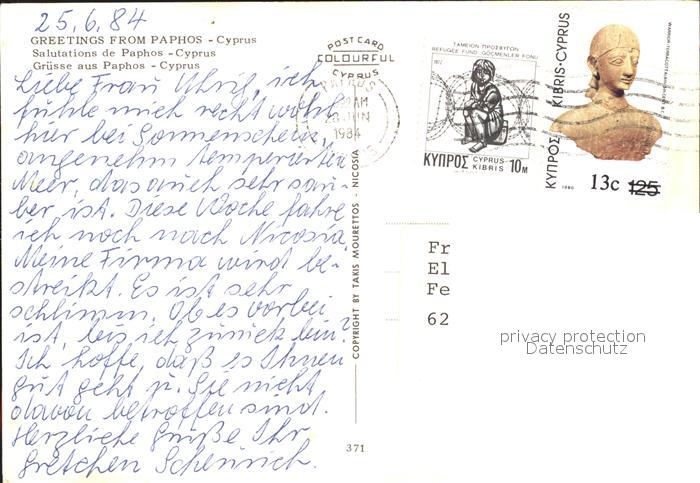 25.6.84
GREETINGS FROM PAPHOS - Cyprus
Salutations de Paphos - Cyprus
Grüsse aus Paphos - Cyprus
Liebe Frau Uhrig, ich
fühle mich recht wohl
hier bei Sonnenschein,
angenehm temperierten
Meer, das auch sehr sau-
ber ist. Diese Woche fahre
ich noch nach Nicosia.
Meine Firma wird be-
streikt. Es ist sehr
schlimm. Ob es vorbei
ist, bis ich zurück bin?
Ich hoffe, daß es Ihnen
gut geht u. Sie nicht
davon betroffen sind.
Herzliche Grüße Ihr
Gretchen Scheurich.
POST CARD
COLOURFUL
CYPRUS
PAPHOS
AM
JUN
1984
ΤΑΜΕΙΟΝ ΠΡΟΣΦΥΓΩΝ
REFUGEE FUND GÖÇMENLER FONU
1977
ΚΥΠΡΟΣ CYPRUS KIBRIS 10M
ΚΥΠΡΟΣ KIBRIS-CYPRUS
1980
13c 125
COPYRIGHT BY TAKIS MOURETTOS - NICOSIA
371
Fr
El
Fe
62
privacy protection
Datenschutz